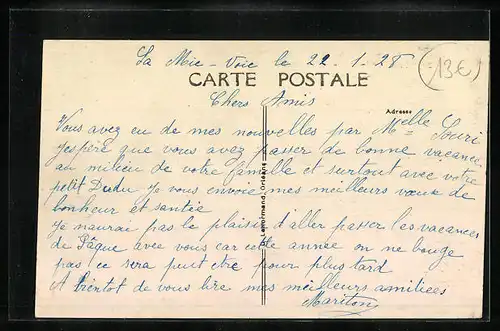 La Mie-Voie le 22-1-28
13€
CARTE POSTALE
Chers Amis
Adresse
Vous avez eu de mes nouvelles par Melle Souri
J'espère que vous avez passer de bonne vacance
au milieu de votre famille et surtout avec votre
petit Dudu Je vous envoie mes meilleurs vœux de
bonheur et santée
Je naurai pas le plaisir d'aller passer les vacances
de Pâque avec vous car cete année on ne bouge
pas ce sera peut etre pour plus tard
A bientot de vous lire mes meilleurs amitiées
Mariton
Orléans